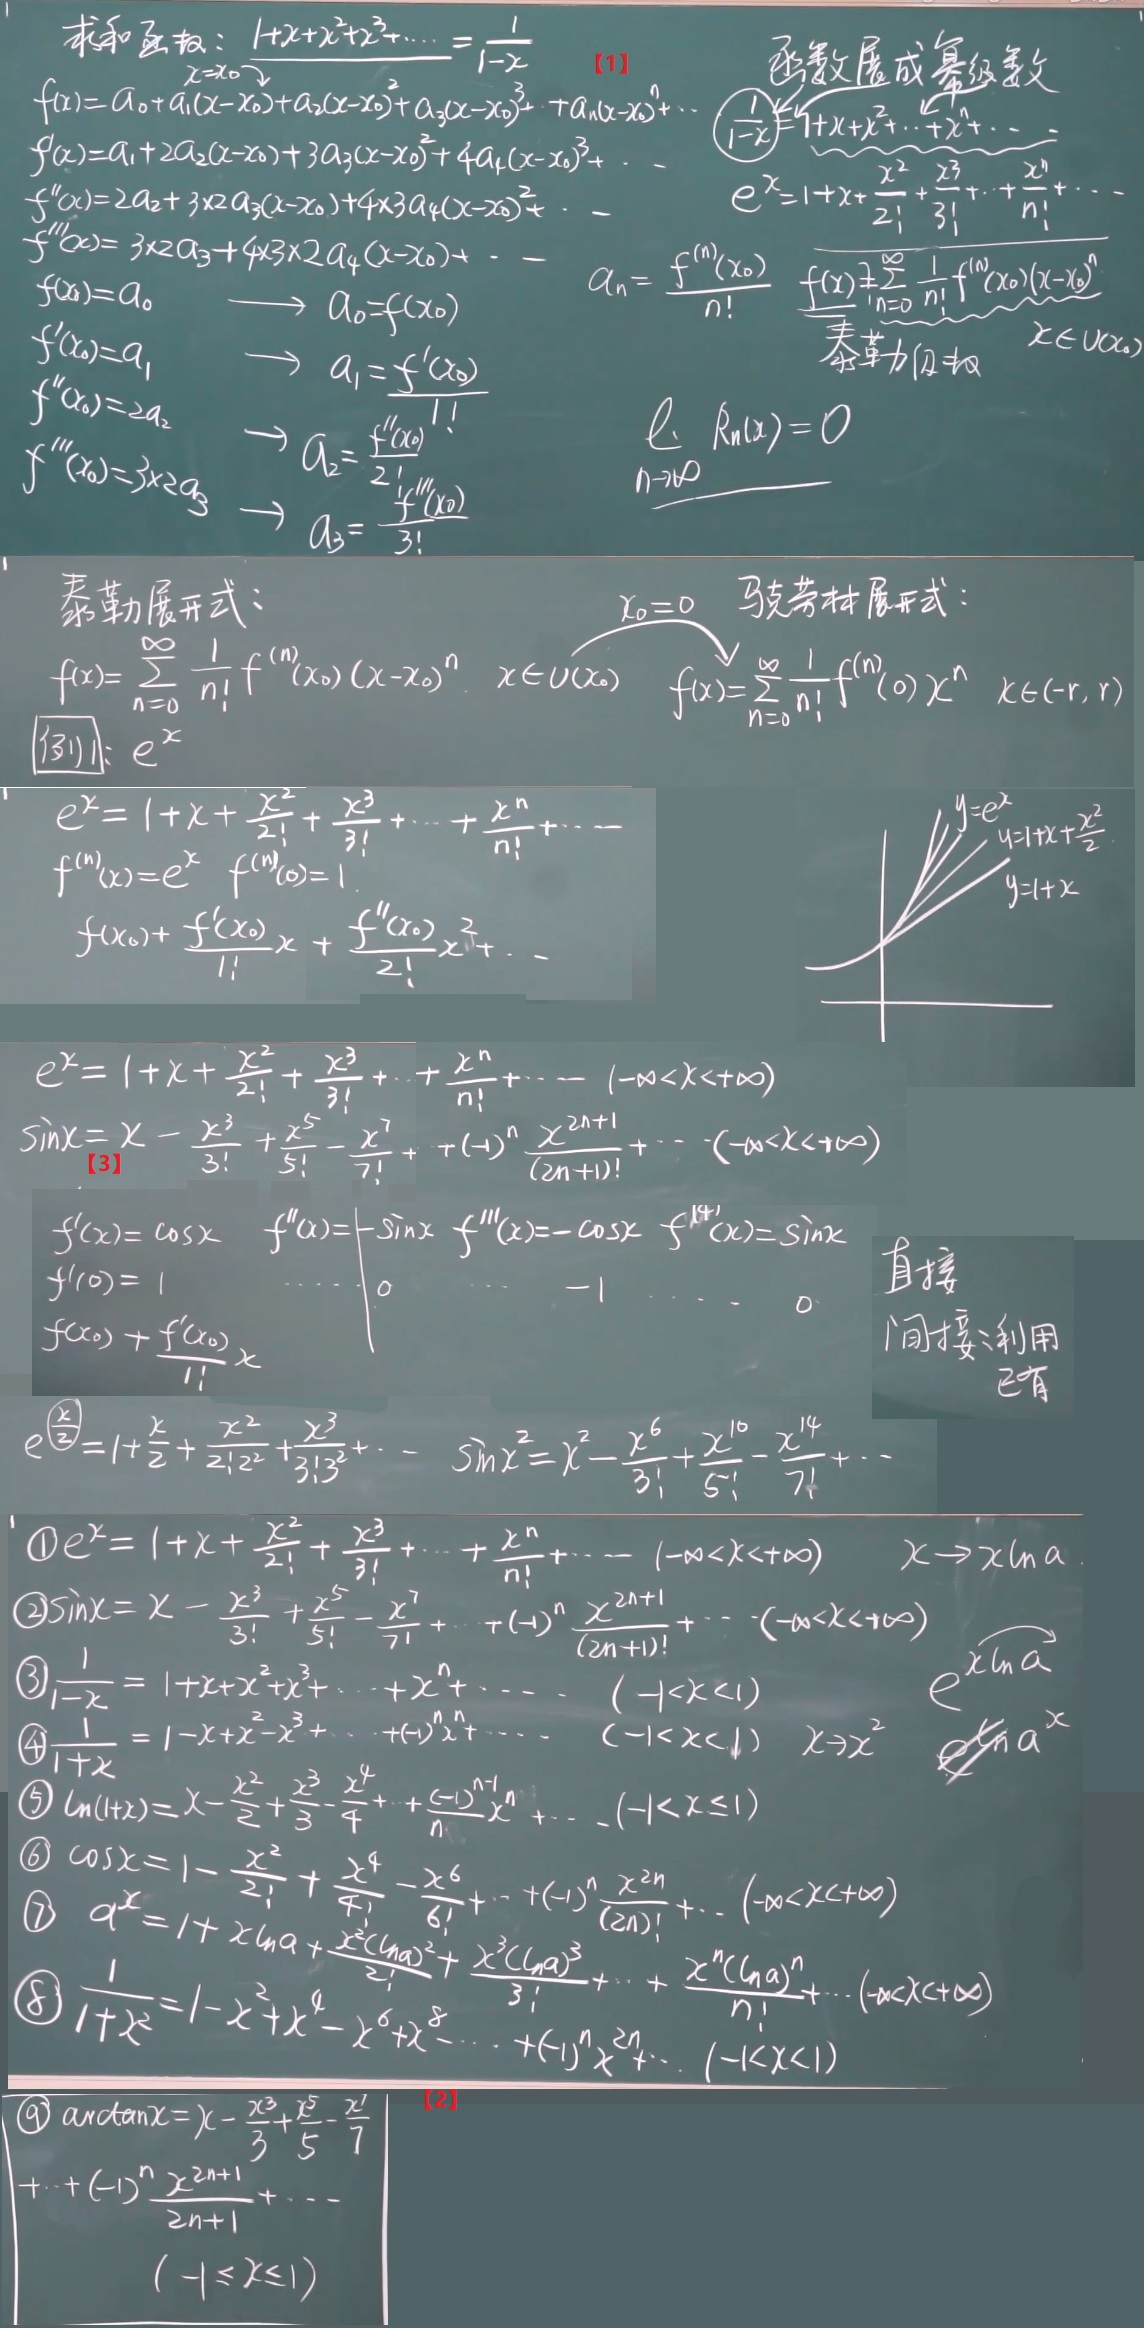 求和函数: 1+x+x²+x³+···· = 1/(1-x)
x=x₀
【1】
函数展成幂级数
f(x)=a₀+a₁(x-x₀)+a₂(x-x₀)²+a₃(x-x₀)³+··+aₙ(x-x₀)ⁿ+··
1/(1-x)=1+x+x²+··+xⁿ+····
f'(x)=a₁+2a₂(x-x₀)+3a₃(x-x₀)²+4a₄(x-x₀)³+···
eˣ=1+x+x²/2!+x³/3!+··+xⁿ/n!+···
f''(x)=2a₂+3×2a₃(x-x₀)+4×3a₄(x-x₀)²+···
f'''(x)=3×2a₃+4×3×2a₄(x-x₀)+···
aₙ=f⁽ⁿ⁾(x₀)/n!
f(x)=∑(n=0→∞) 1/n! f⁽ⁿ⁾(x₀)(x-x₀)ⁿ
x∈U(x₀)
泰勒级数
f(x₀)=a₀ → a₀=f(x₀)
f'(x₀)=a₁ → a₁=f'(x₀)/1!
f''(x₀)=2a₂ → a₂=f''(x₀)/2!
f'''(x₀)=3×2a₃ → a₃=f'''(x₀)/3!
Rₙ(x)=0
n→∞
泰勒展开式:
x₀=0
马克劳林展开式:
f(x)=∑(n=0→∞) 1/n! f⁽ⁿ⁾(x₀)(x-x₀)ⁿ x∈U(x₀)
f(x)=∑(n=0→∞) 1/n! f⁽ⁿ⁾(0)xⁿ x∈(-r,r)
例1: eˣ
eˣ=1+x+x²/2!+x³/3!+···+xⁿ/n!+····
f⁽ⁿ⁾(x)=eˣ f⁽ⁿ⁾(0)=1.
f(x₀)+f'(x₀)/1! x+f''(x₀)/2! x²+···
y=eˣ
y=1+x+x²/2
y=1+x
eˣ=1+x+x²/2!+x³/3!+··+xⁿ/n!+···· (-∞<x<+∞)
sinx=x-x³/3!+x⁵/5!-x⁷/7!+··+(-1)ⁿ x²ⁿ⁺¹/(2n+1)!+···(-∞<x<+∞)
【3】
f'(x)=cosx f''(x)=-sinx f'''(x)=-cosx f⁽⁴⁾(x)=sinx
f'(0)=1 ····· 0 ··· -1 ····· 0
f(x₀)+f'(x₀)/1! x
直接
间接:利用
已有
e^(x/2)=1+x/2+x²/2!2²+x³/3!3²+···
sinx²=x²-x⁶/3!+x¹⁰/5!-x¹⁴/7!+···
①eˣ=1+x+x²/2!+x³/3!+···+xⁿ/n!+···· (-∞<x<+∞) x→xlna.
②sinx=x-x³/3!+x⁵/5!-x⁷/7!+··+(-1)ⁿ x²ⁿ⁺¹/(2n+1)!+···(-∞<x<+∞)
e^(xlna)
③1/(1-x)=1+x+x²+x³+···+xⁿ+····· (-1<x<1)
④1/(1+x)=1-x+x²-x³+···+(-1)ⁿxⁿ+···· (-1<x<1) x→x²
aˣ
⑤ln(1+x)=x-x²/2+x³/3-x⁴/4+··+(-1)ⁿ⁻¹/n xⁿ+···(-1<x≤1)
⑥cosx=1-x²/2!+x⁴/4!-x⁶/6!+··+(-1)ⁿ x²ⁿ/(2n)!+··(-∞<x<+∞)
⑦aˣ=1+xlna+x²(lna)²/2!+x³(lna)³/3!+··+xⁿ(lna)ⁿ/n!+···(-∞<x<+∞)
⑧1/(1+x²)=1-x²+x⁴-x⁶+x⁸-····+(-1)ⁿx²ⁿ+··(-1<x<1)
【2】
⑨arctanx=x-x³/3+x⁵/5-x⁷/7
+··+(-1)ⁿ x²ⁿ⁺¹/(2n+1)+····
(-1≤x≤1)